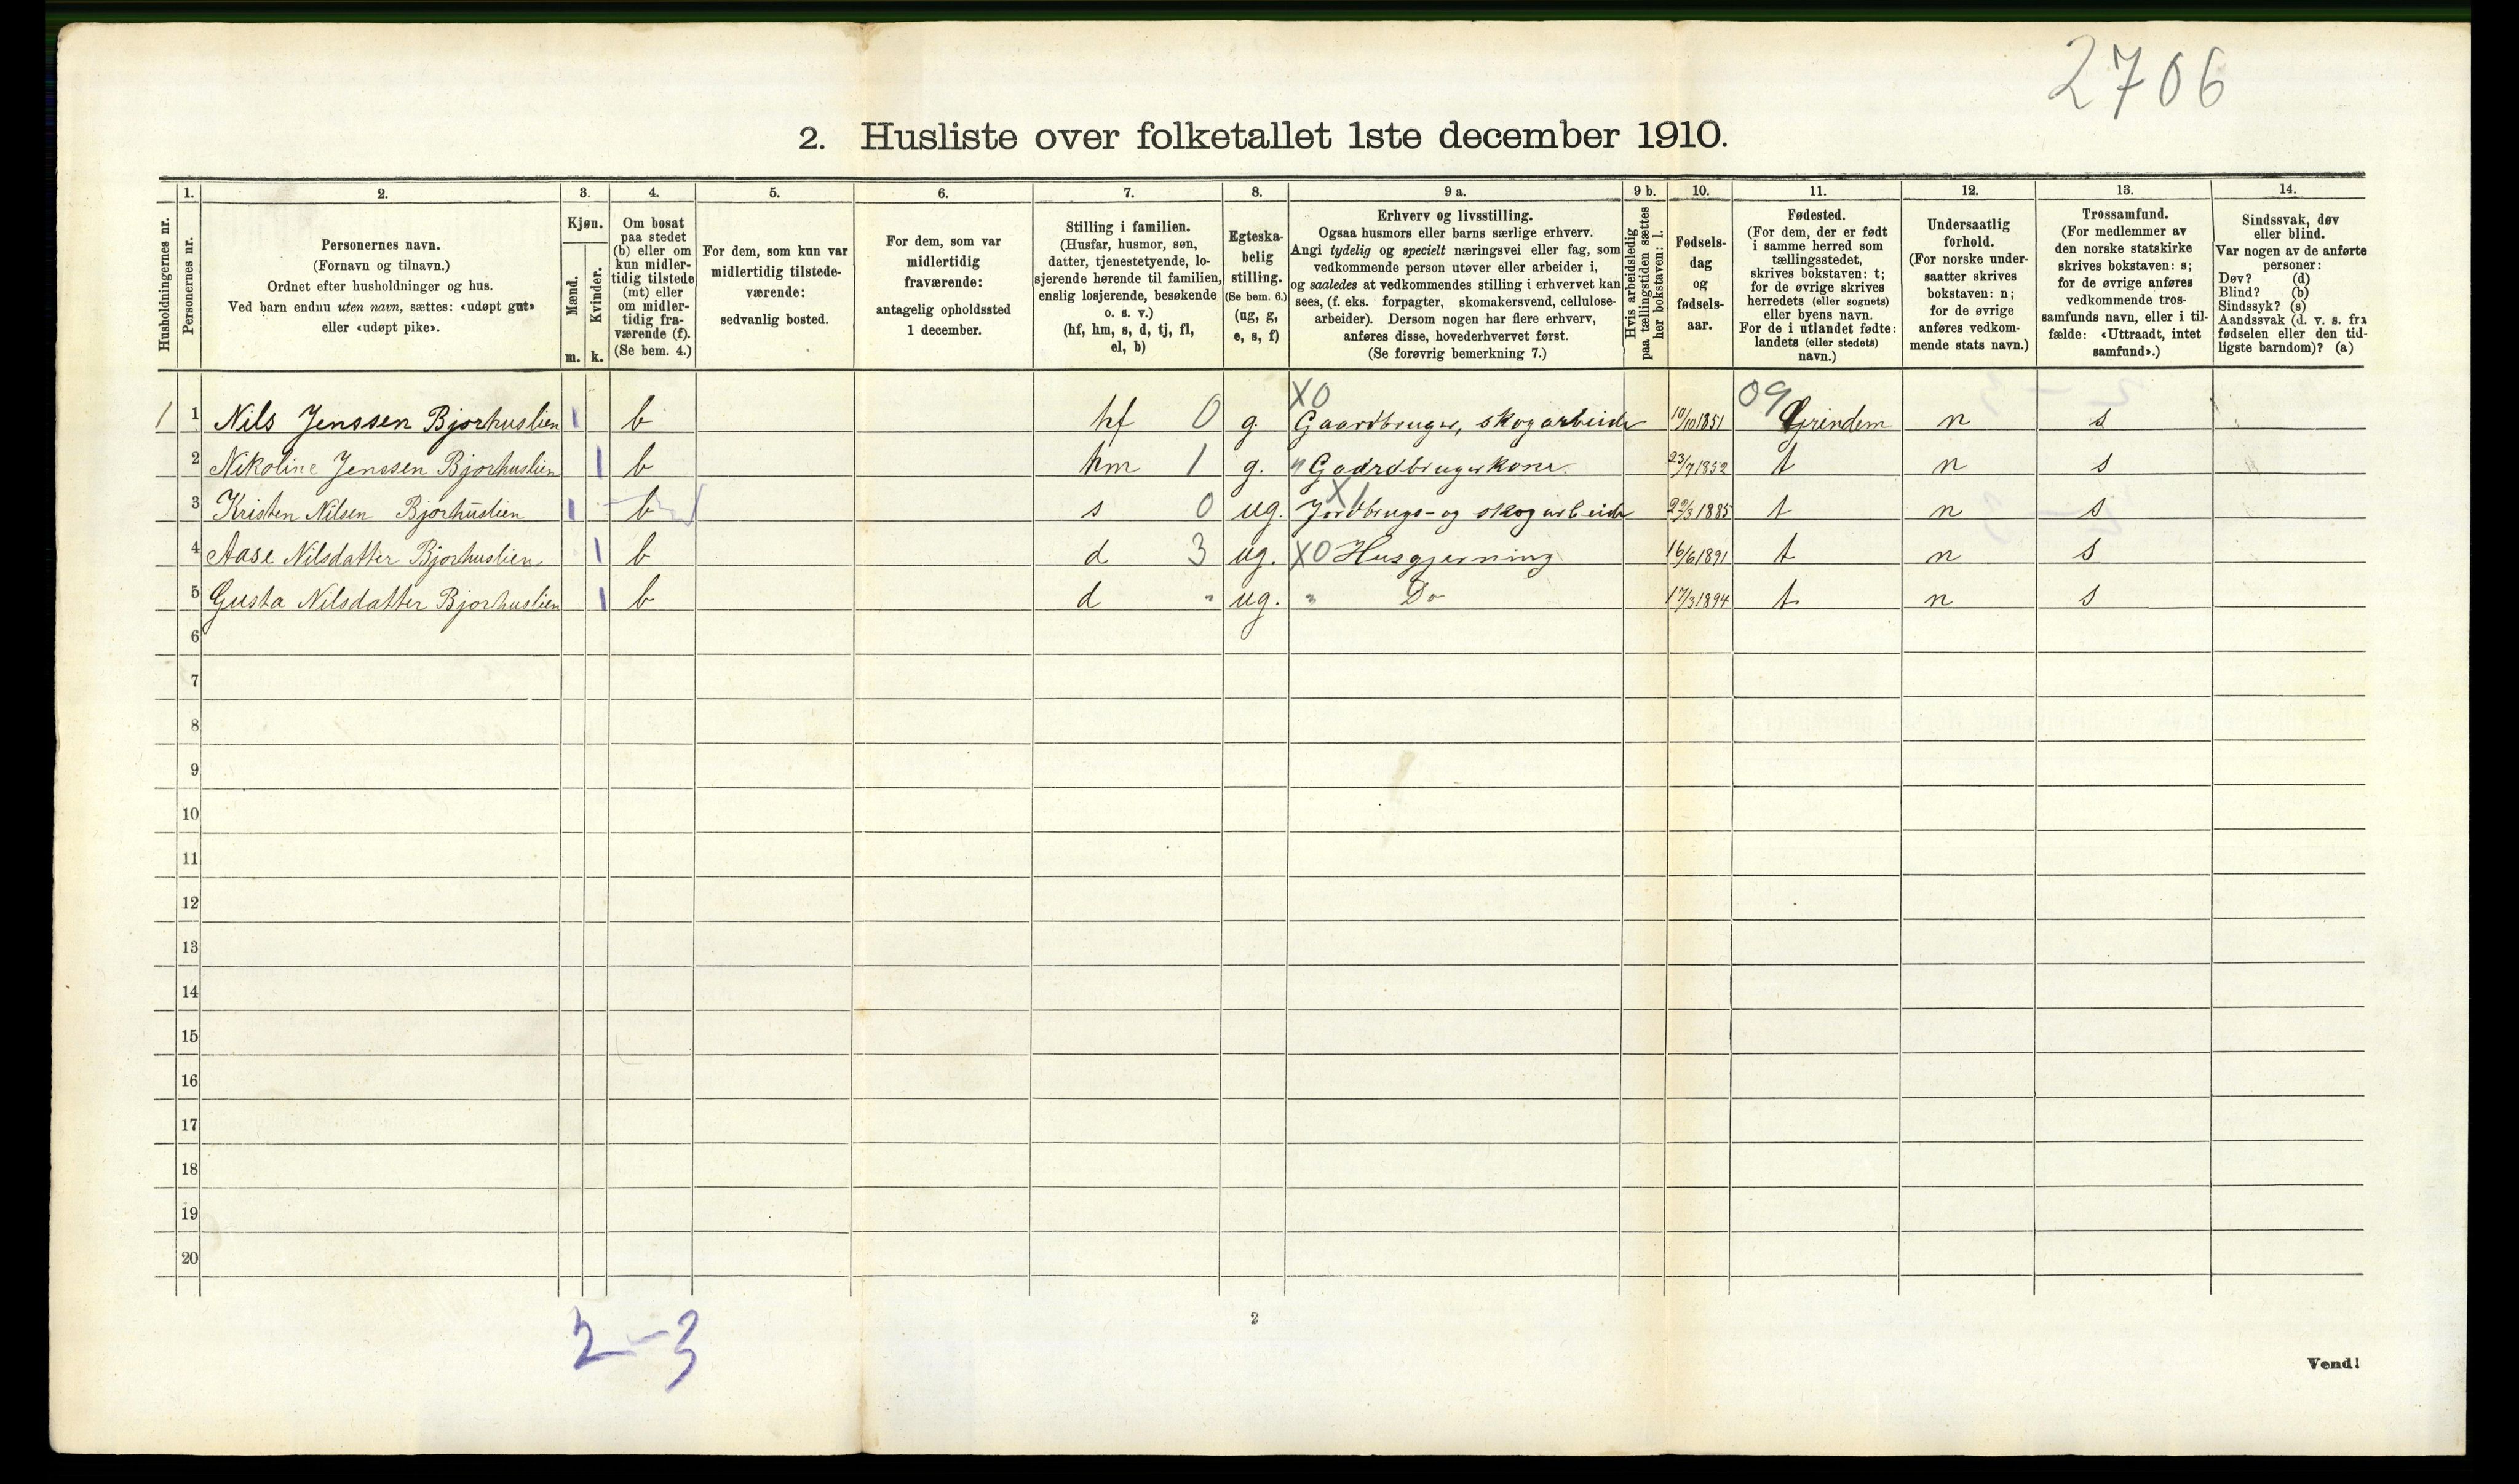 2706
2. Husliste over folketallet 1ste december 1910.
Husholdningernes nr.
1.
Personernes nr.
2.
Personernes navn.
(Fornavn og tilnavn.)
Ordnet efter husholdninger og hus.
Ved barn endnu uten navn, sættes: «udøpt gut»
eller «udøpt pike».
3.
Kjøn.
Mænd.
m.
Kvinder.
k.
4.
Om bosat
paa stedet
(b) eller om
kun midler-
tidig tilstede
(mt) eller
om midler-
tidig fra-
værende (f).
(Se bem. 4.)
5.
For dem, som kun var
midlertidig tilstede-
værende:
sedvanlig bosted.
6.
For dem, som var
midlertidig
fraværende:
antagelig opholdssted
1 december.
7.
Stilling i familien.
(Husfar, husmor, søn,
datter, tjenestetyende, lo-
sjerende hørende til familien,
enslig losjerende, besøkende
o. s. v.)
(hf, hm, s, d, tj, fl,
el, b)
8.
Egteska-
belig
stilling.
(Se bem. 6.)
(ug, g,
e, s, f)
9 a.
Erhverv og livsstilling.
Ogsaa husmors eller barns særlige erhverv.
Angi tydelig og specielt næringsvei eller fag, som
vedkommende person utøver eller arbeider i,
og saaledes at vedkommendes stilling i erhvervet kan
sees, (f. eks. forpagter, skomakersvend, cellulose-
arbeider). Dersom nogen har flere erhverv,
anføres disse, hovederhvervet først.
(Se forøvrig bemerkning 7.)
9 b.
Hvis arbeidsledig
paa tællingstiden sættes
her bokstaven: l.
10.
Fødsels-
dag
og
fødsels-
aar.
11.
Fødested.
(For dem, der er født
i samme herred som
tællingsstedet,
skrives bokstaven: t;
for de øvrige skrives
herredets (eller sognets)
eller byens navn.
For de i utlandet fødte:
landets (eller stedets)
navn.)
12.
Undersaatlig
forhold.
(For norske under-
saatter skrives
bokstaven: n;
for de øvrige
anføres vedkom-
mende stats navn.)
13.
Trossamfund.
(For medlemmer av
den norske statskirke
skrives bokstaven: s;
for de øvrige anføres
vedkommende tros-
samfunds navn, eller i til-
fælde: «Uttraadt, intet
samfund».)
14.
Sindssvak, døv
eller blind.
Var nogen av de anførte
personer:
Døv? (d)
Blind? (b)
Sindssyk? (s)
Aandssvak (d. v. s. fra
fødselen eller den tid-
ligste barndom)? (a)
X0 09
1 1 Nils Jenssen Bjorhuslien 1 b hf 0 g. Gaardbruger, skogarbeide 10/10 1851 Grindem n s
2 Nikoline Jenssen Bjorhuslien 1 b hm 1 g. " Gaardbrugerkone. 23/7 1852 t n s
X1
3 Kristen Nilsen Bjorhuslien 1 b s 0 ug. Jordbrugs- og skogarbeide 1885 t n s
4 Aase Nilsdatter Bjorhuslien 1 b d 3 ug. X0 Husgjerning 16/6 1891 t n s
5 Gusta Nilsdatter Bjorhuslien 1 b d " ug. " Do 17/3 1894 t n s
6
7
8
9
10
11
12
13
14
15
16
17
18
19
20
2-3
2
Vend!